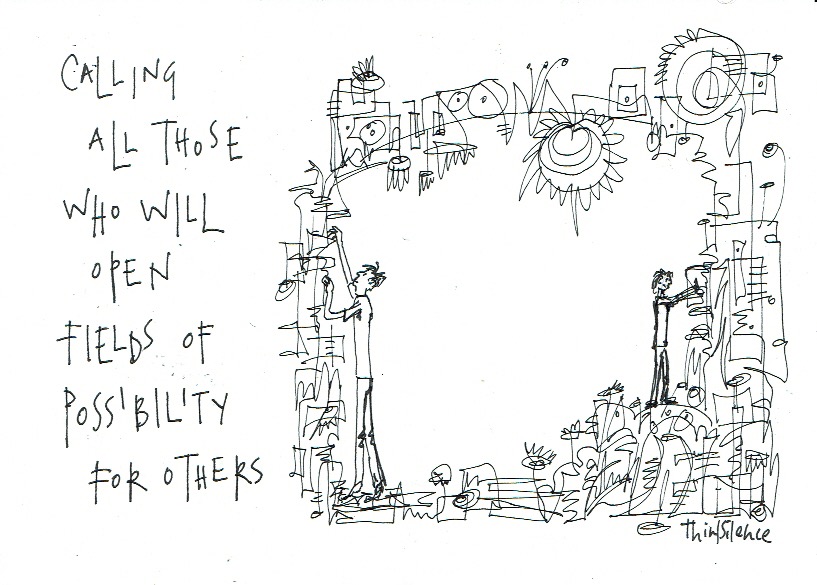 CALLING
ALL THOSE
WHO WILL
OPEN
FIELDS OF
POSSIBILITY
FOR OTHERS
ThinSilence